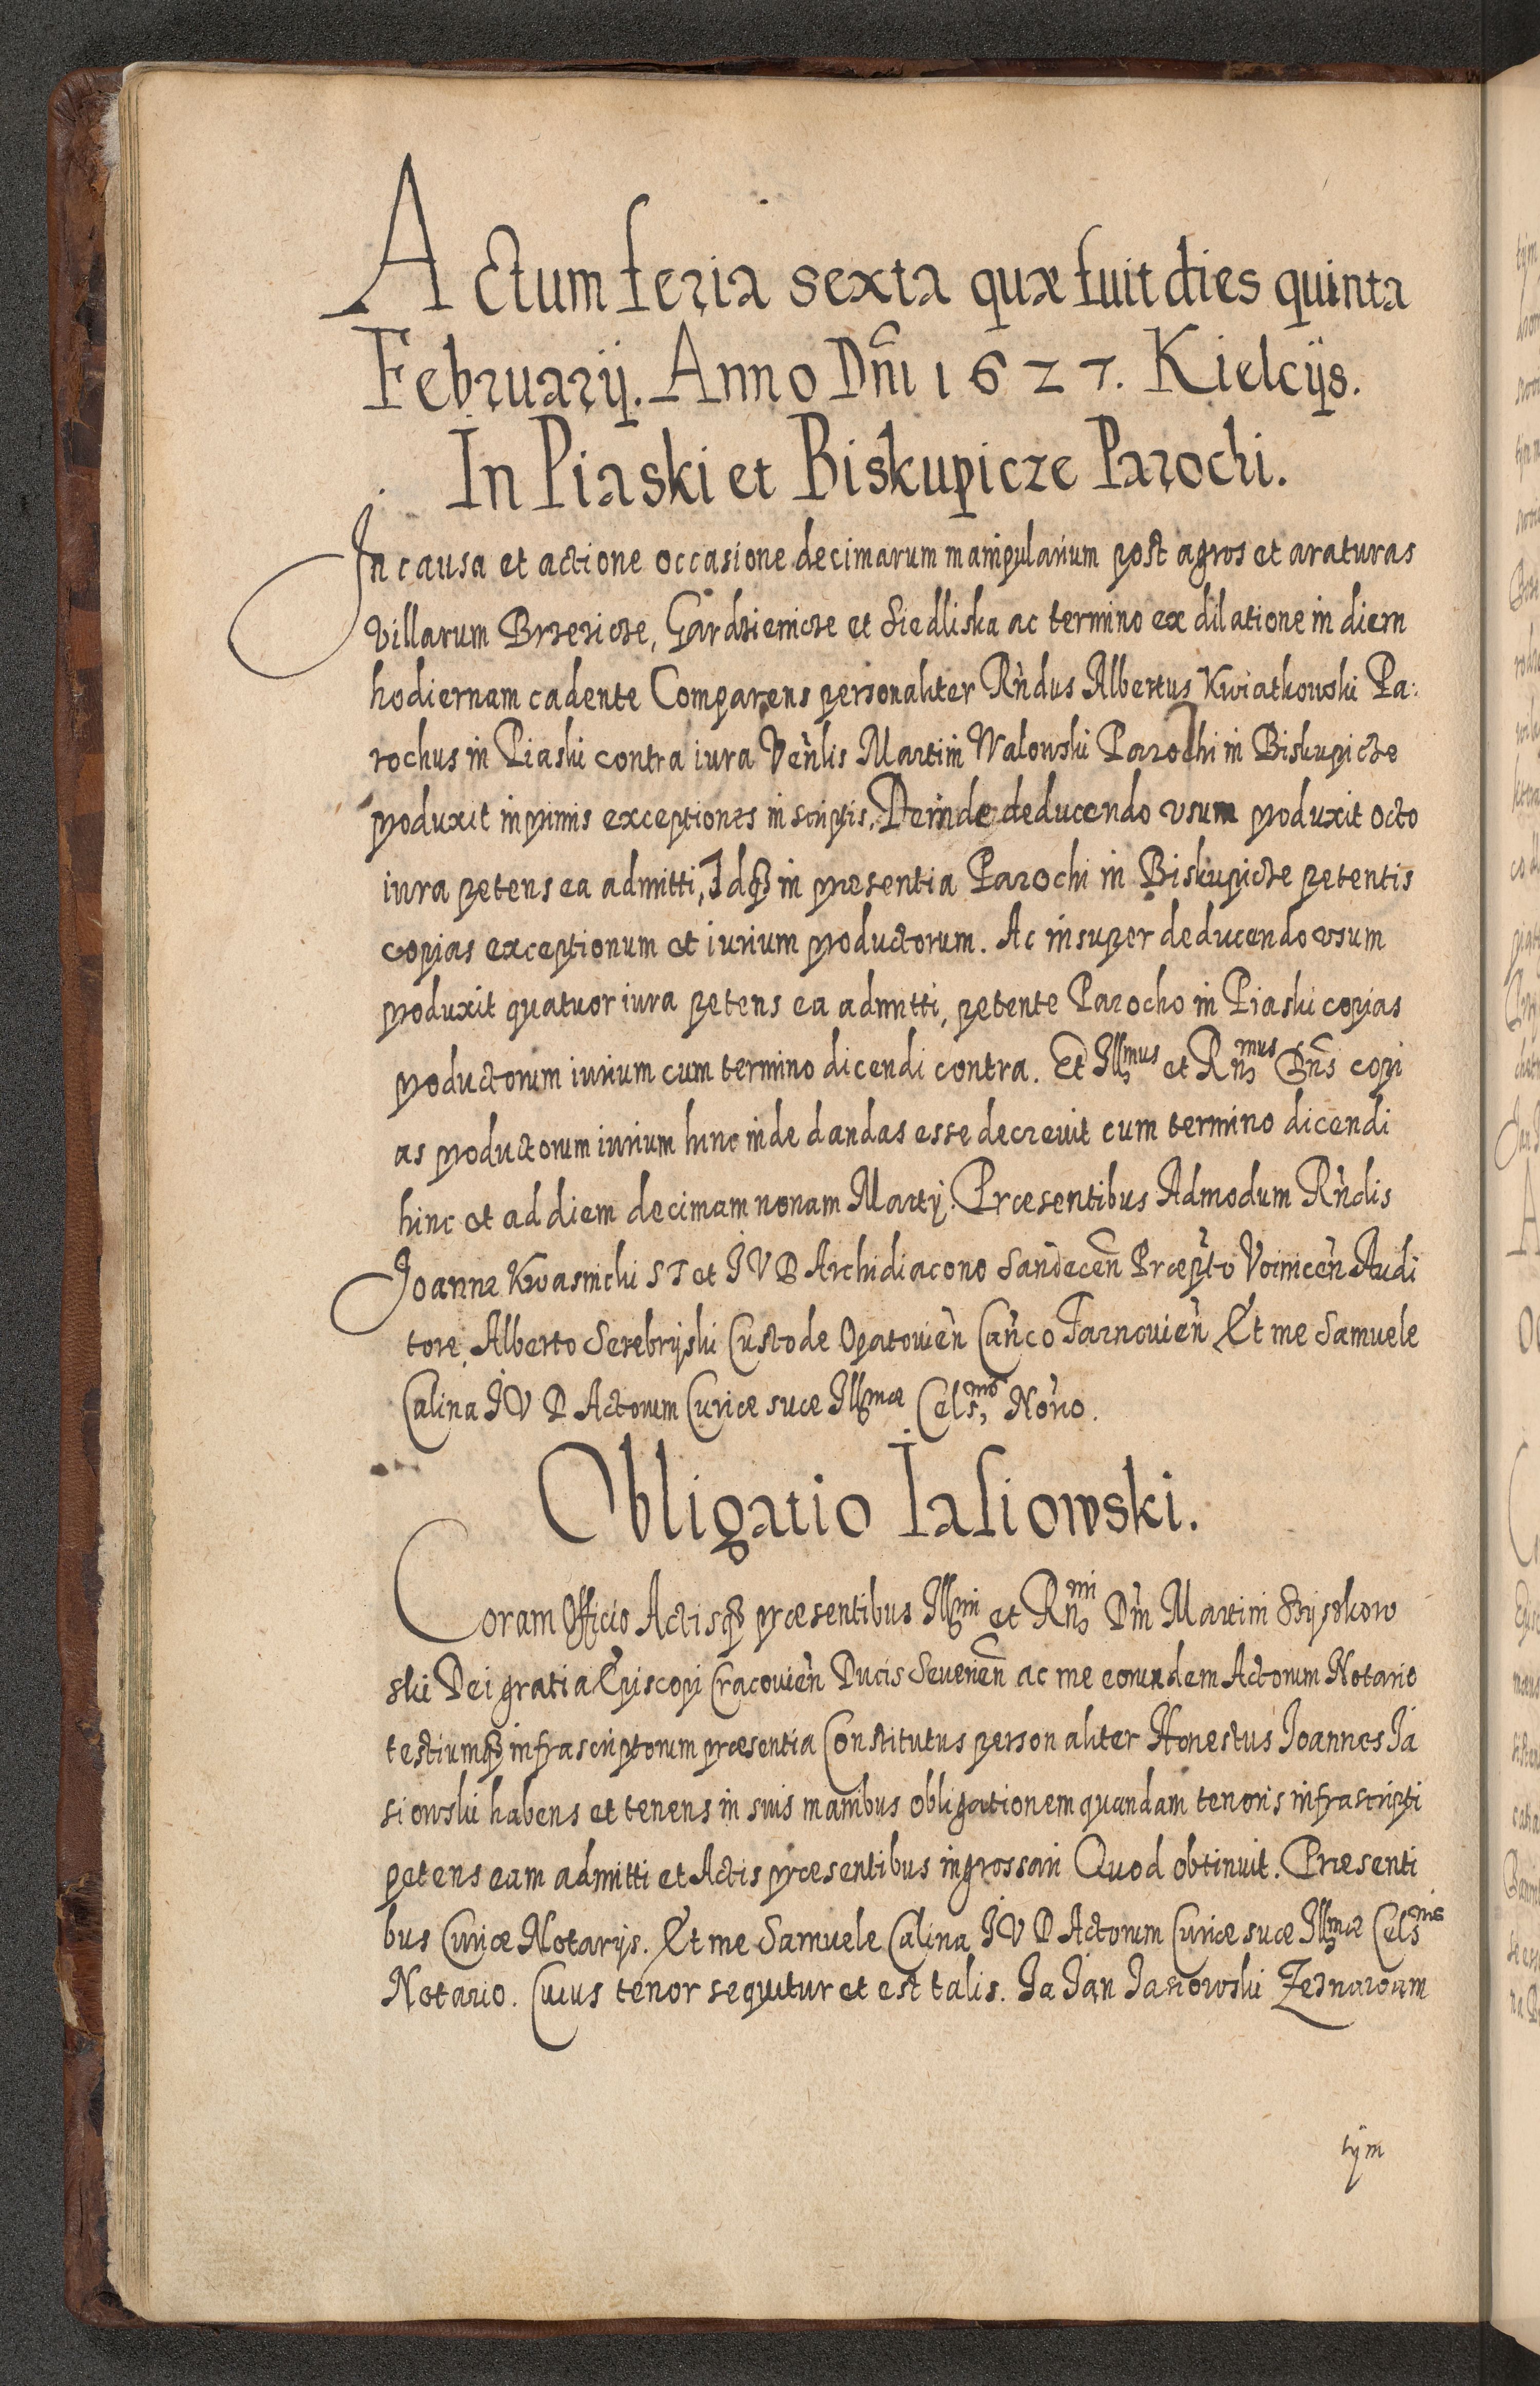 Actum feria sexta quæ fuit dies quinta
Februarij. Anno Dñi 1627. Kielcijs.
In Piaski et Biskupicze Parochi.
In causa et actione occasione decimarum manipularium post agros et araturas
villarum Brzezicze, Gardzienicze et Siedliska ac termino ex dilatione in diem
hodiernam cadente Comparens personaliter Rñdus Albertus Kwiatkowski Pa:
rochus in Piaski contra iura Veñlis Martini Walowski Parochi in Biskupicze
produxit inprimis exceptiones in scriptis, Deinde deducendo vsum produxit octo
iura petens ea admitti, Idqȝ in præsentia Parochi in Biskupicze petentis
copias exceptionum et iurium productorum. Ac insuper deducendo vsum
produxit quatuor iura petens ea admitti, petente Parocho in Piaski copias
productorum iurium cum termino dicendi contra. Et Illmus et Rnmus Dñs copi
as productorum iurium hinc inde dandas esse decreuit cum termino dicendi
hinc et ad diem decimam nonam Martij. Præsentibus Admodum Rñdis
Joanne Kwasnichi S T et I V D Archidiacono Sandeceñ Præpto Voiniceñ Audi
tore, Alberto Serebryski Custode Opatovieñ Cañco Tarnovieñ Et me Samuele
Calina I V D Actorum Curiæ suæ Illmæ Celsmo Norio.
Obligatio Iasiowski.
Coram Officio Actisqȝ præsentibus Illmi et Rnmi Dñi Martini Szyszkow
ski Dei gratia Episcopi Cracovieñ Ducis Severieñ ac me eorundem Actorum Notario
testiumqȝ infrascriptorum præsentia Constitutus personaliter Honestus Joannes Ja
siowski habens et tenens in suis manibus obligationem quandam tenoris infrascripti
petens eam admitti et Actis præsentibus ingrossari Quod obtinuit. Præsenti
bus Curiæ Notarijs. Et me Samuele Calina I V D Actorum Curiæ suæ Illmæ Celsnis
Notario. Cuius tenor sequitur et est talis. Ja Jan Jasiowski Zeznawam
tym